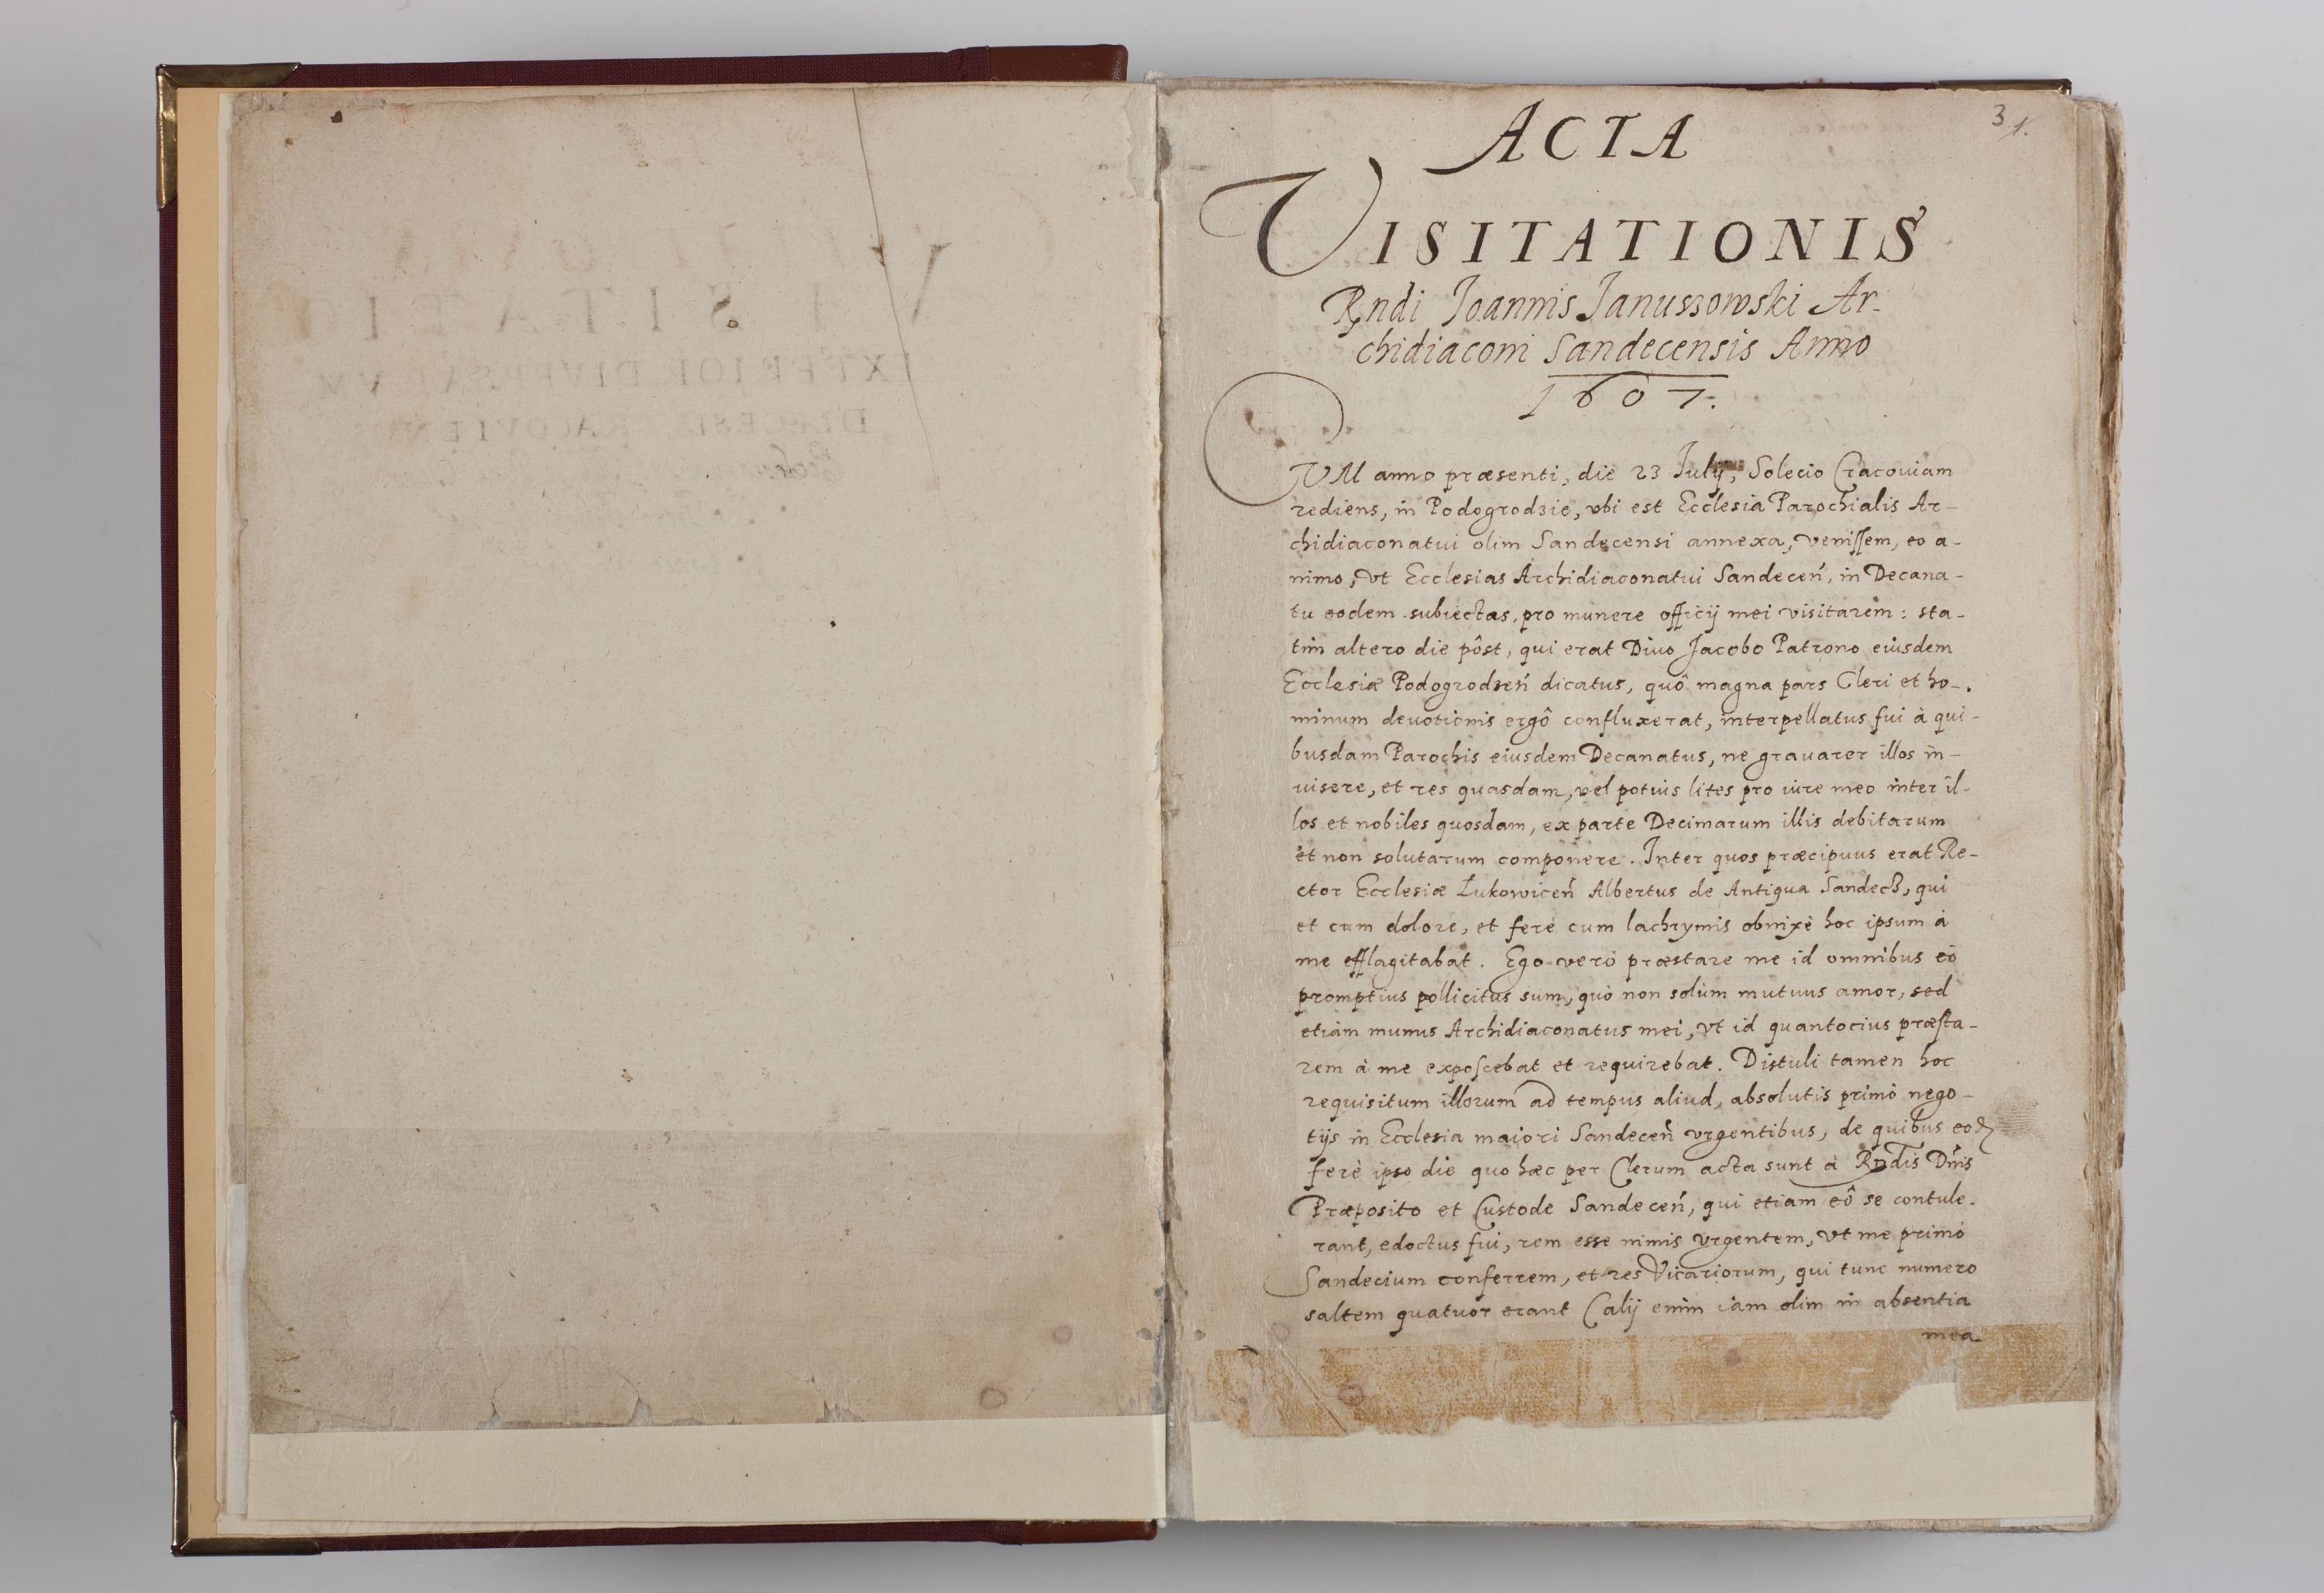 3 1.
ACTA
VISITATIONIS
Rndi Joannis Januszowski Ar-
chidiaconi Sandecensis Anno
1607.
CUM anno præsenti, die 23 Julij, Solecio Cracouiam
rediens, in Podogrodzie, vbi est Ecclesia Parochialis Ar-
chidiaconatui olim Sandecensi annexa, venissem, eo a-
nimo, vt Ecclesias Archidiaconatui Sandeceń, in Decana-
tu eodem subiectas, pro munere officij mei visitarem: sta-
tim altero die pôst, qui erat Diuo Jacobo Patrono eiusdem
Ecclesiæ Podogrodzeń dicatus, quô magna pars Cleri et ho-
minum deuotionis ergô confluxerat, interpellatus fui à qui-
busdam Parochis eiusdem Decanatus, ne grauarer illos in-
uisere, et res quasdam, vel potius lites pro iure meo inter il-
los et nobiles quosdam, ex parte Decimarum illis debitarum
et non solutarum componere. Inter quos præcipuus erat Re-
ctor Ecclesiæ Łukowiceń Albertus de Antiqua Sandecz, qui
et cum dolore, et ferè cum lachrymis obnixè hoc ipsum à
me efflagitabat. Ego verò præstare me id omnibus eò
promptius pollicitus sum, quò non solùm mutuus amor, sed
etiàm munus Archidiaconatus mei, vt id quantocius præsta-
rem à me exposcebat et requirebat. Distuli tamen hoc
requisitum illorum ad tempus aliud, absolutis primò nego-
tijs in Ecclesia maiori Sandeceń vrgentibus, de quibus eod
ferè ipso die quo hæc per Clerum acta sunt à Rndis Dnis
Præposito et Custode Sandeceń, qui etiam eô se contule-
rant, edoctus fui, rem esse nimis vrgentem, vt me primò
Sandecium conferrem, et res Vicariorum, qui tunc numero
saltem quatuor erant (alij enim iam olim in absentia
mea